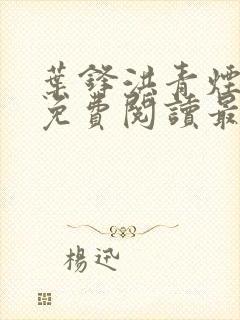 葉鋒洪青煙
免費閱讀最
楊迅